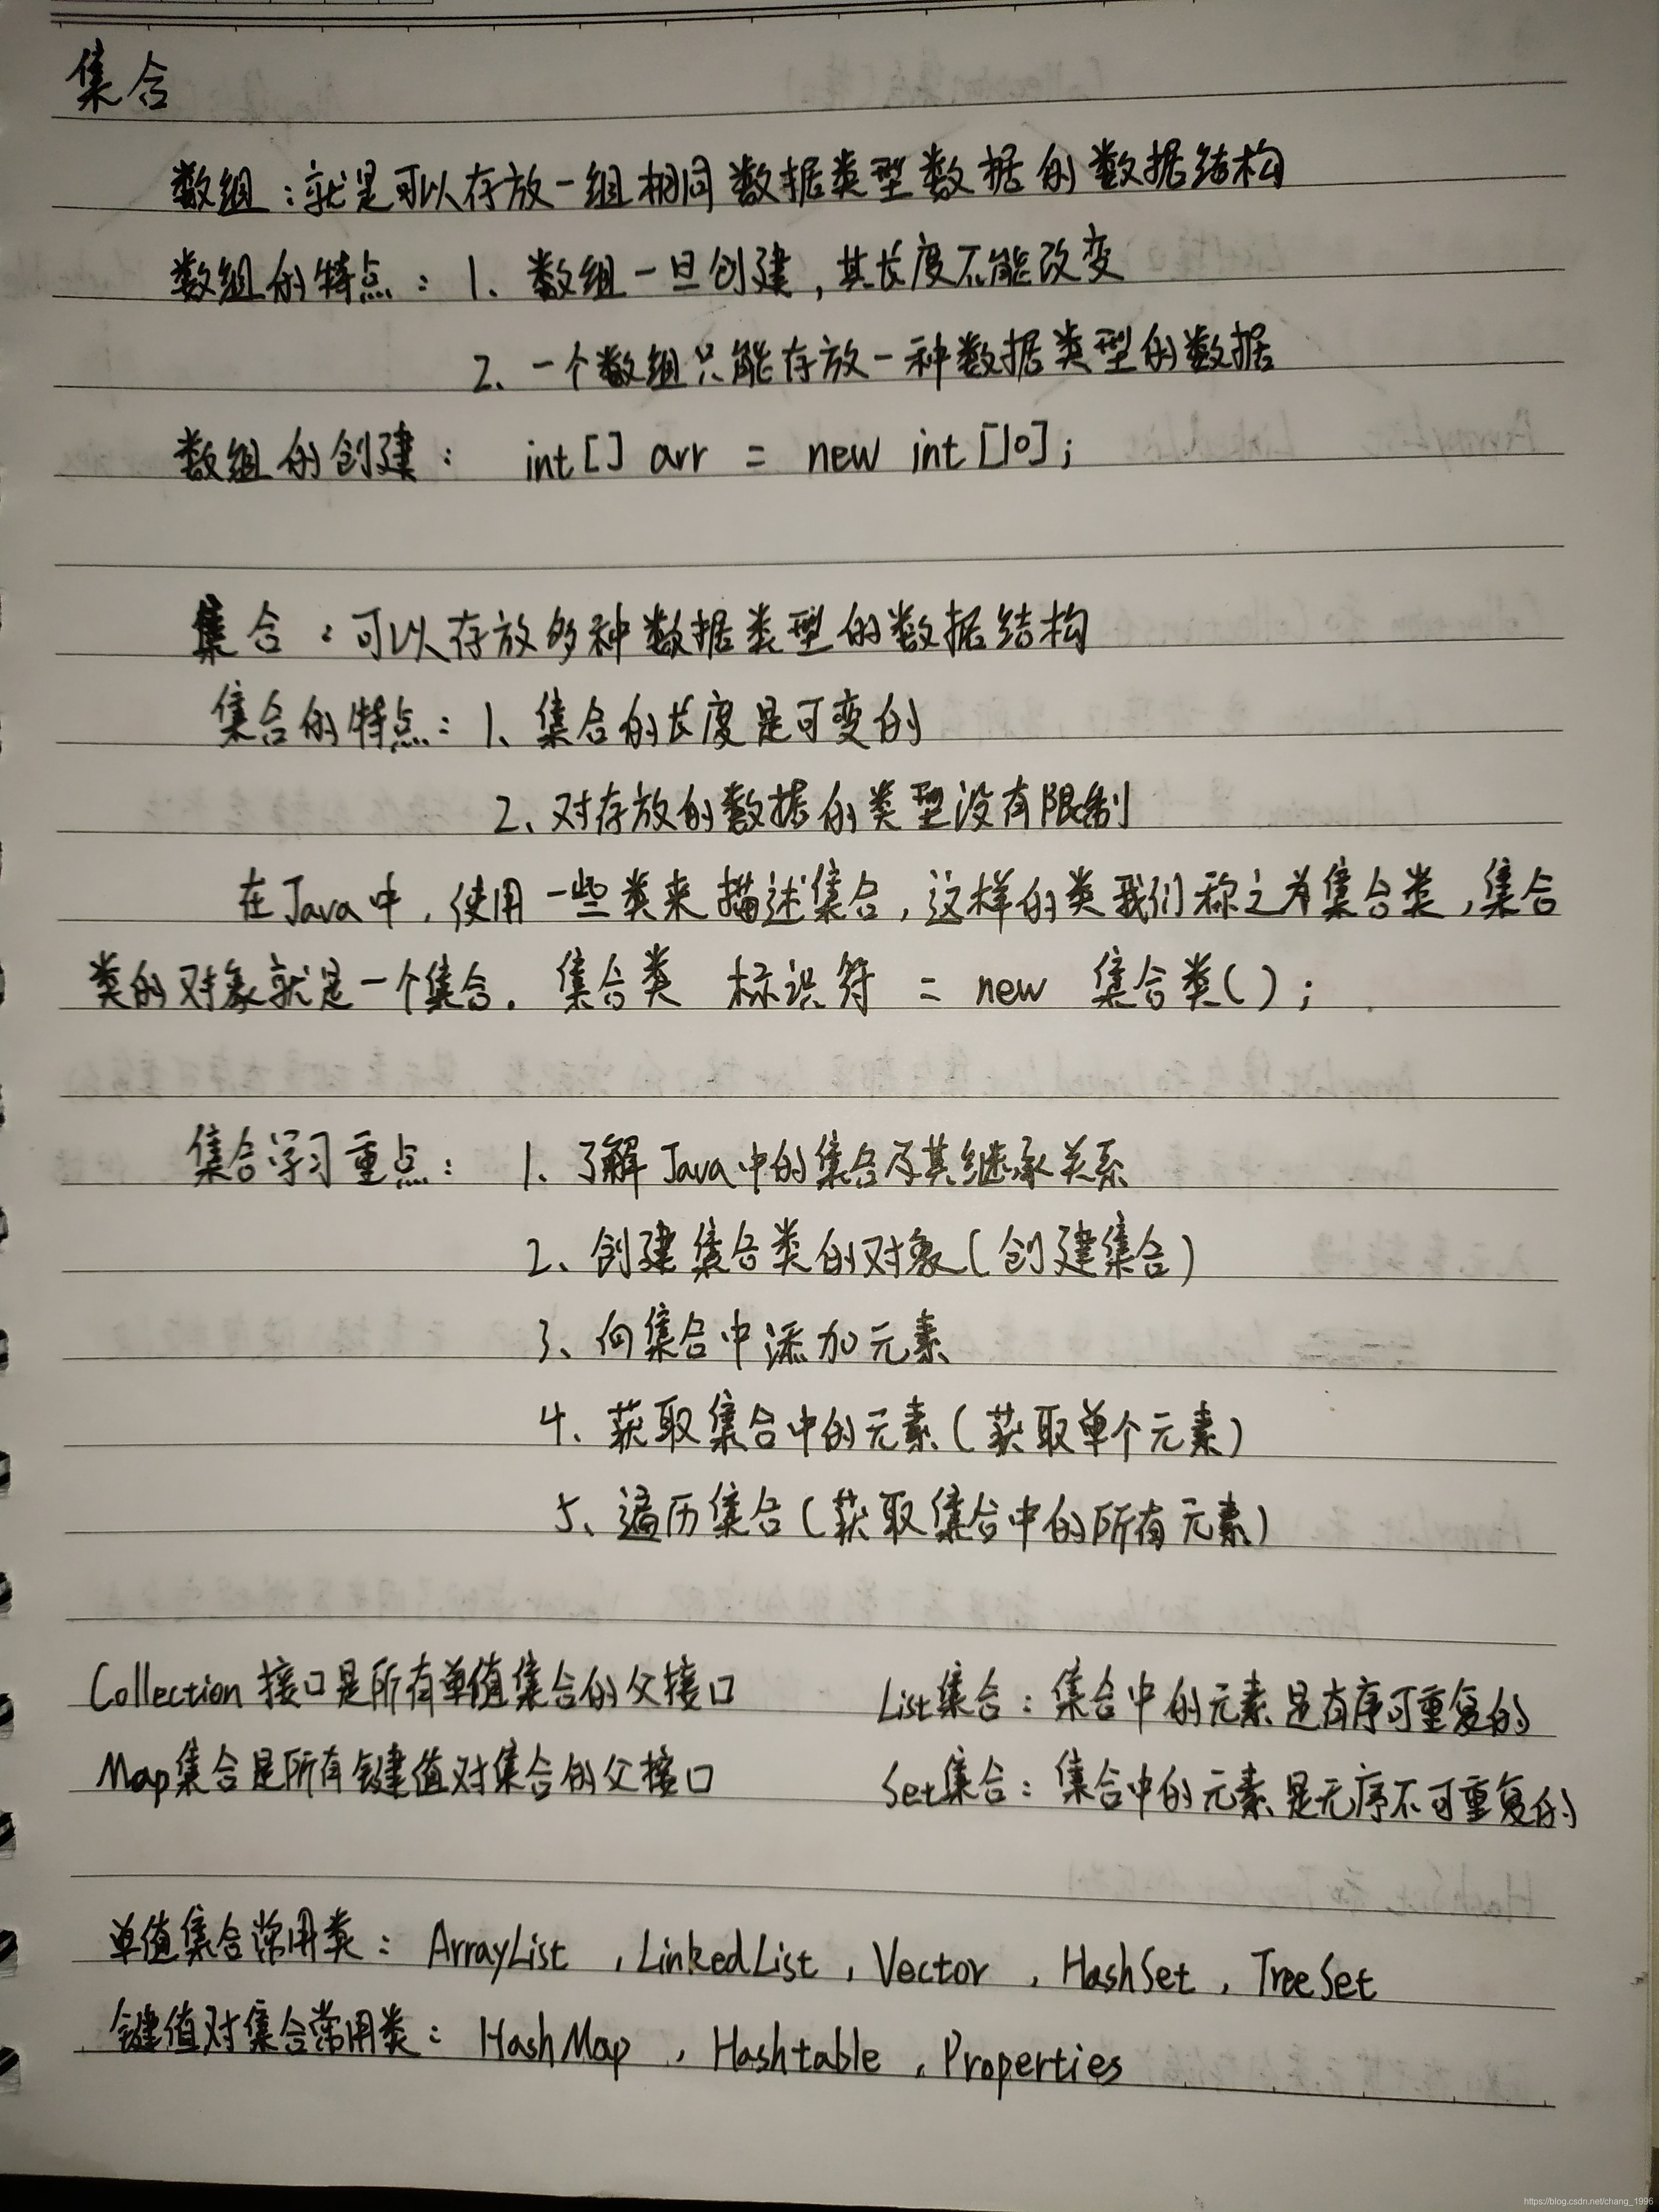 集合
数组：就是可以存放一组相同数据类型数据的数据结构
数组的特点：1、数组一旦创建，其长度不能改变
2、一个数组只能存放一种数据类型的数据
数组的创建： int[] arr = new int[10];
集合：可以存放多种数据类型的数据结构
集合的特点：1、集合的长度是可变的
2、对存放的数据的类型没有限制
在Java中，使用一些类来描述集合，这样的类我们称之为集合类，集合
类的对象就是一个集合。集合类 标识符 = new 集合类();
集合学习重点：1、了解Java中的集合及其继承关系
2、创建集合类的对象(创建集合)
3、向集合中添加元素
4、获取集合中的元素(获取单个元素)
5、遍历集合(获取集合中的所有元素)
Collection接口是所有单值集合的父接口
Map集合是所有键值对集合的父接口
List集合：集合中的元素是有序可重复的
Set集合：集合中的元素是无序不可重复的
单值集合常用类：ArrayList，LinkedList，Vector，HashSet，TreeSet
键值对集合常用类：HashMap，Hashtable，Properties
https://blog.csdn.net/chang_1996